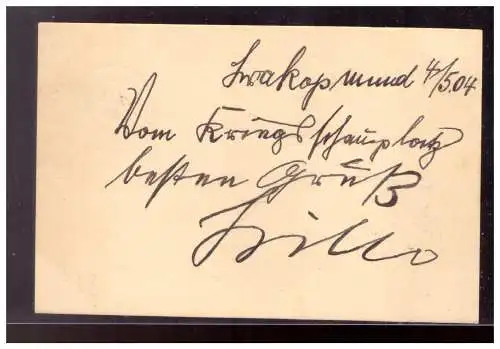 Swakopmund 4/5.04
Vom Kriegsschauplatz
besten Gruß